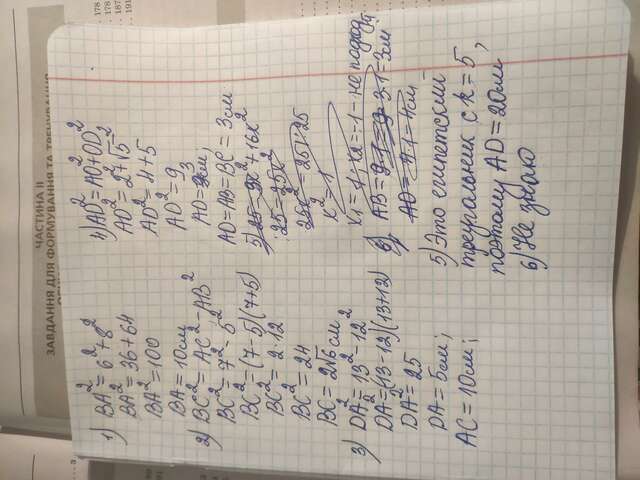 ЧАСТИНА II
ЗАВДАННЯ ДЛЯ ФОРМУВАННЯ ТА
1) BA² = 6² + 8²
BA² = 36 + 64
BA² = 100
BA = 10см
2) BC² = AC² - AB²
BC² = 7² - 5²
BC² = (7-5)(7+5)
BC² = 2·12
BC² = 24
BC = 2√6 см²
3) DA² = 13² - 12²
DA² = (13-12)(13+12)
DA² = 25
DA = 5см;
AC = 10см;
4) AD² = AO² + OD²
AD² = 2² + √5²
AD² = 4 + 5
AD² = 9
AD = 3см
AD = AB = BC = 3см
5) 25 = 9x² + 16x²
25 = 25x²
25x² = 25 :25
x² = 1
x₁ = 1; x₂ = -1 - не подход
6) AB = 3·1 = 3см
AD = 4·1 = 4см
5) Это египетский
треугольник с k = 5,
поэтому AD = 20см
6) Не знаю